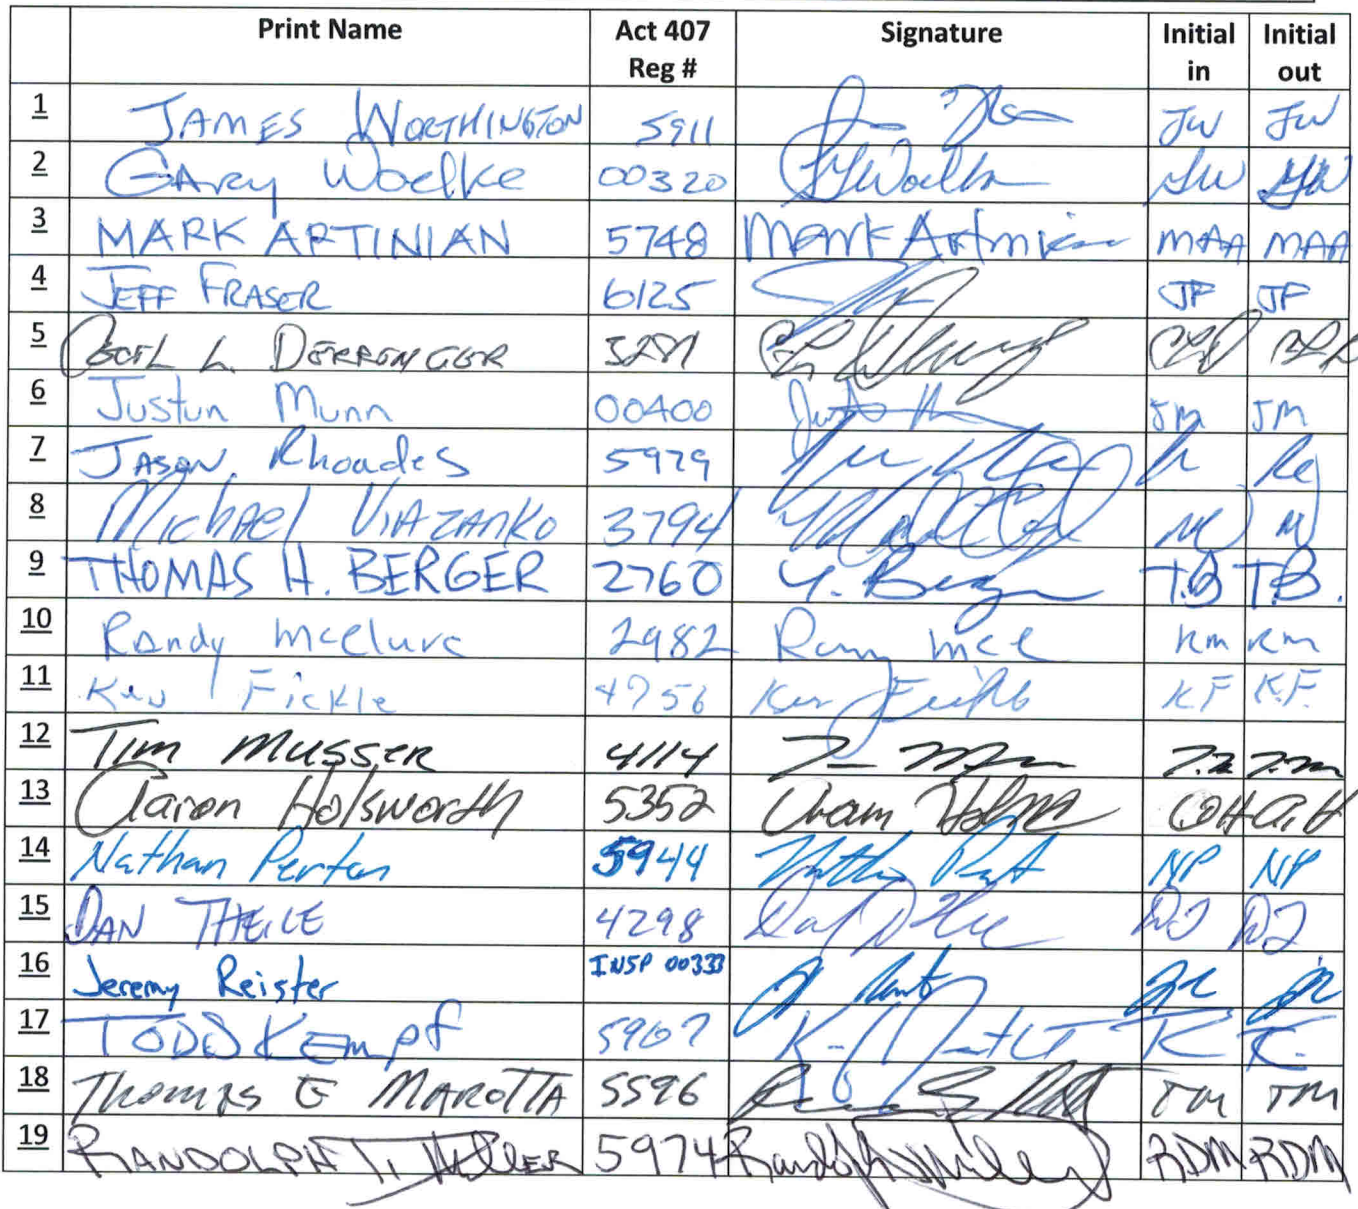 Print Name Act 407 Reg # Signature Initial in Initial out
1 JAMES WORTHINGTON 5911 JW JW
2 GARY Woelke 00320 GWoelke GW GW
3 MARK ARTINIAN 5748 Mark Artinian MAA MAA
4 JEFF FRASER 6125 JF JF
5 CECIL L. DERRENGER CLD CLD
6 Justun Munn 00400 JM JM
7 JASON Rhoades 5979
8 Michael VIAZANKO 3794 M M
9 THOMAS H. BERGER 2760 T. Berger T.B T.B.
10 Randy McClure 2982 Randy McC RM RM
11 Ken Fickle 4756 Ken Fickle KF K.F.
12 Tim Musser 4114 T.M T.M
13 Aaron Holsworth 5352 Aaron AH A.H
14 Nathan Perton 5944 NP NP
15 DAN THEILE 4298 DT DT
16 Jeremy Reister INSP 00333 JR JR
17 TODD Kempf 5907 K K.
18 Thomas E MAROTTA 5596 TM TM
19 RANDOLPH D. MILLER 5974 Randolph D Miller RDM RDM